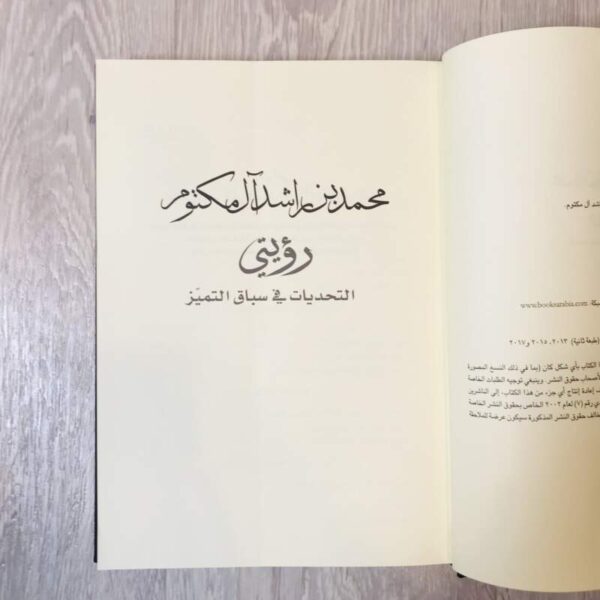 محمد بن راشد آل مكتوم
رؤيتي
التحديات في سباق التميّز
شد آل مكتوم.
www.booksarabia.com
(طبعة ثانية) ٢٠١٣، ٢٠١٥ و٢٠١٧
الكتاب بأي شكل كان (بما في ذلك النسخ المصورة
لأصحاب حقوق النشر. وينبغي توجيه الطلبات الخاصة
إعادة إنتاج أي جزء من هذا الكتاب، إلى الناشرين
رقم (٧) لعام ٢٠٠٢ الخاص بحقوق النشر الخاصة
حقوق النشر المذكورة سيكون عرضة للملاحقة